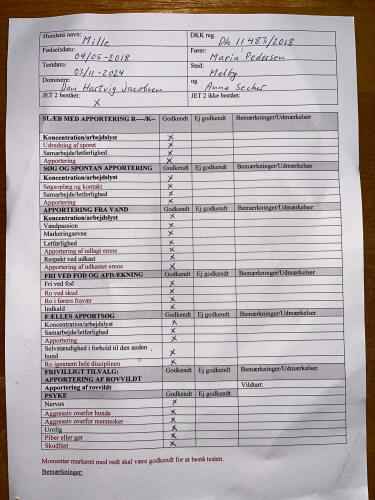 Hundens navn: Mille DKK reg. Dk 11483/2018
Fødselsdato: 09/05-2018 Fører: Maria Pedersen
Testdato: 03/11-2024 Sted: Melby
Dommere: Dan Hartvig Jacobsen og Anne Secher
JET 2 bestået: X JET 2 ikke bestået:
SLÆB MED APPORTERING R-----/K-- Godkendt Ej godkendt Bemærkninger/Udmærkelser
Koncentration/arbejdslyst X
Udredning af sporet X
Samarbejde/letførlighed X
Apportering X
SØG OG SPONTAN APPORTERING Godkendt Ej godkendt Bemærkninger/Udmærkelser
Koncentration/arbejdslyst X
Søgsoplæg og kontakt X
Samarbejde/letførlighed X
Apportering X
APPORTERING FRA VAND Godkendt Ej godkendt Bemærkninger/Udmærkelser
Koncentration/arbejdslyst X
Vandpassion X
Markeringsevne X
Letførlighed X
Apportering af udlagt emne X
Respekt ved udkast X
Apportering af udkastet emne X
FRI VED FOD OG AFDÆKNING Godkendt Ej godkendt Bemærkninger/Udmærkelser
Fri ved fod X
Ro ved skud X
Ro i førers fravær X
Indkald X
FÆLLES APPORTSØG Godkendt Ej godkendt Bemærkninger/Udmærkelser
Koncentration/arbejdslyst X
Samarbejde/letførlighed X
Apportering X
Selvstændighed i forhold til den anden
hund X
Ro igennem hele disciplinen X
FRIVILLIGT TILVALG: Godkendt Ej godkendt Bemærkninger/Udmærkelser
APPORTERING AF ROVVILDT
Apportering af rovvildt Vildtart:
PSYKE Godkendt Ej godkendt
Nervøs X
Aggressiv overfor hunde X
Aggressiv overfor mennesker X
Urolig X
Piber eller gør X
Skudfast X
Momenter markeret med rødt skal være godkendt for at bestå testen.
Bemærkninger: